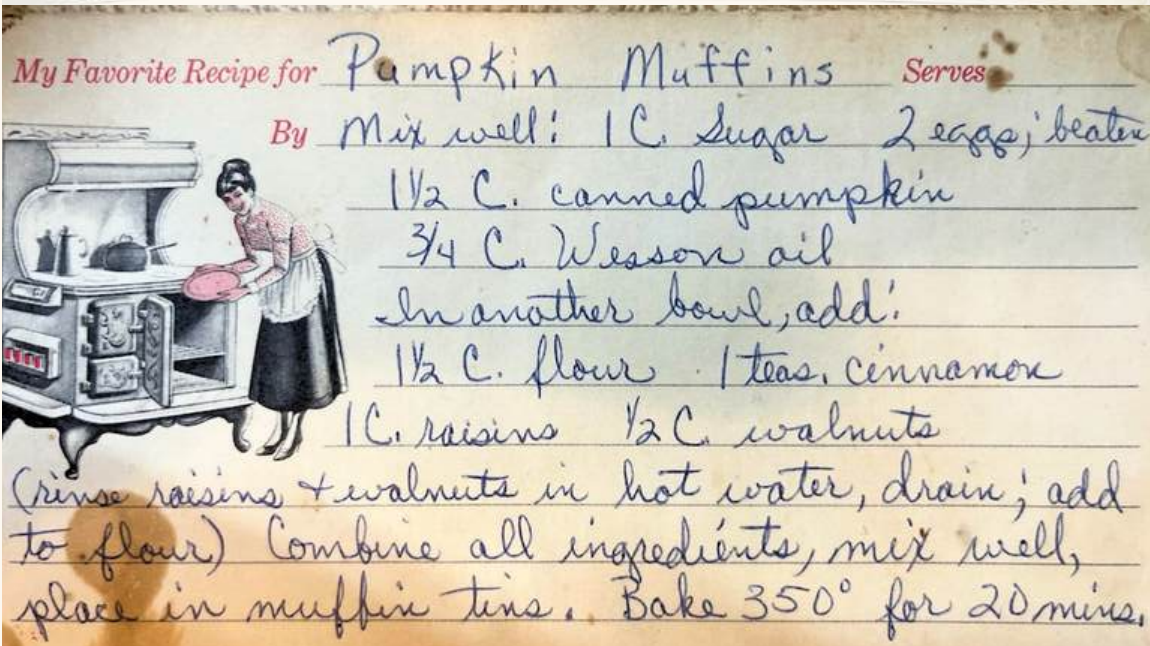 My Favorite Recipe for Pumpkin Muffins Serves
By Mix well: 1 C. Sugar 2 eggs; beaten
1½ C. canned pumpkin
3/4 C. Wesson oil
In another bowl, add:
1½ C. flour 1 teas. cinnamon
1 C. raisins ½ C. walnuts
(rinse raisins + walnuts in hot water, drain; add
to flour) Combine all ingredients, mix well,
place in muffin tins. Bake 350° for 20 mins.